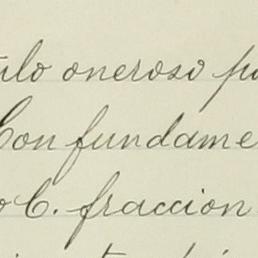 ulo oneroso po
Con fundame
o C. fraccion